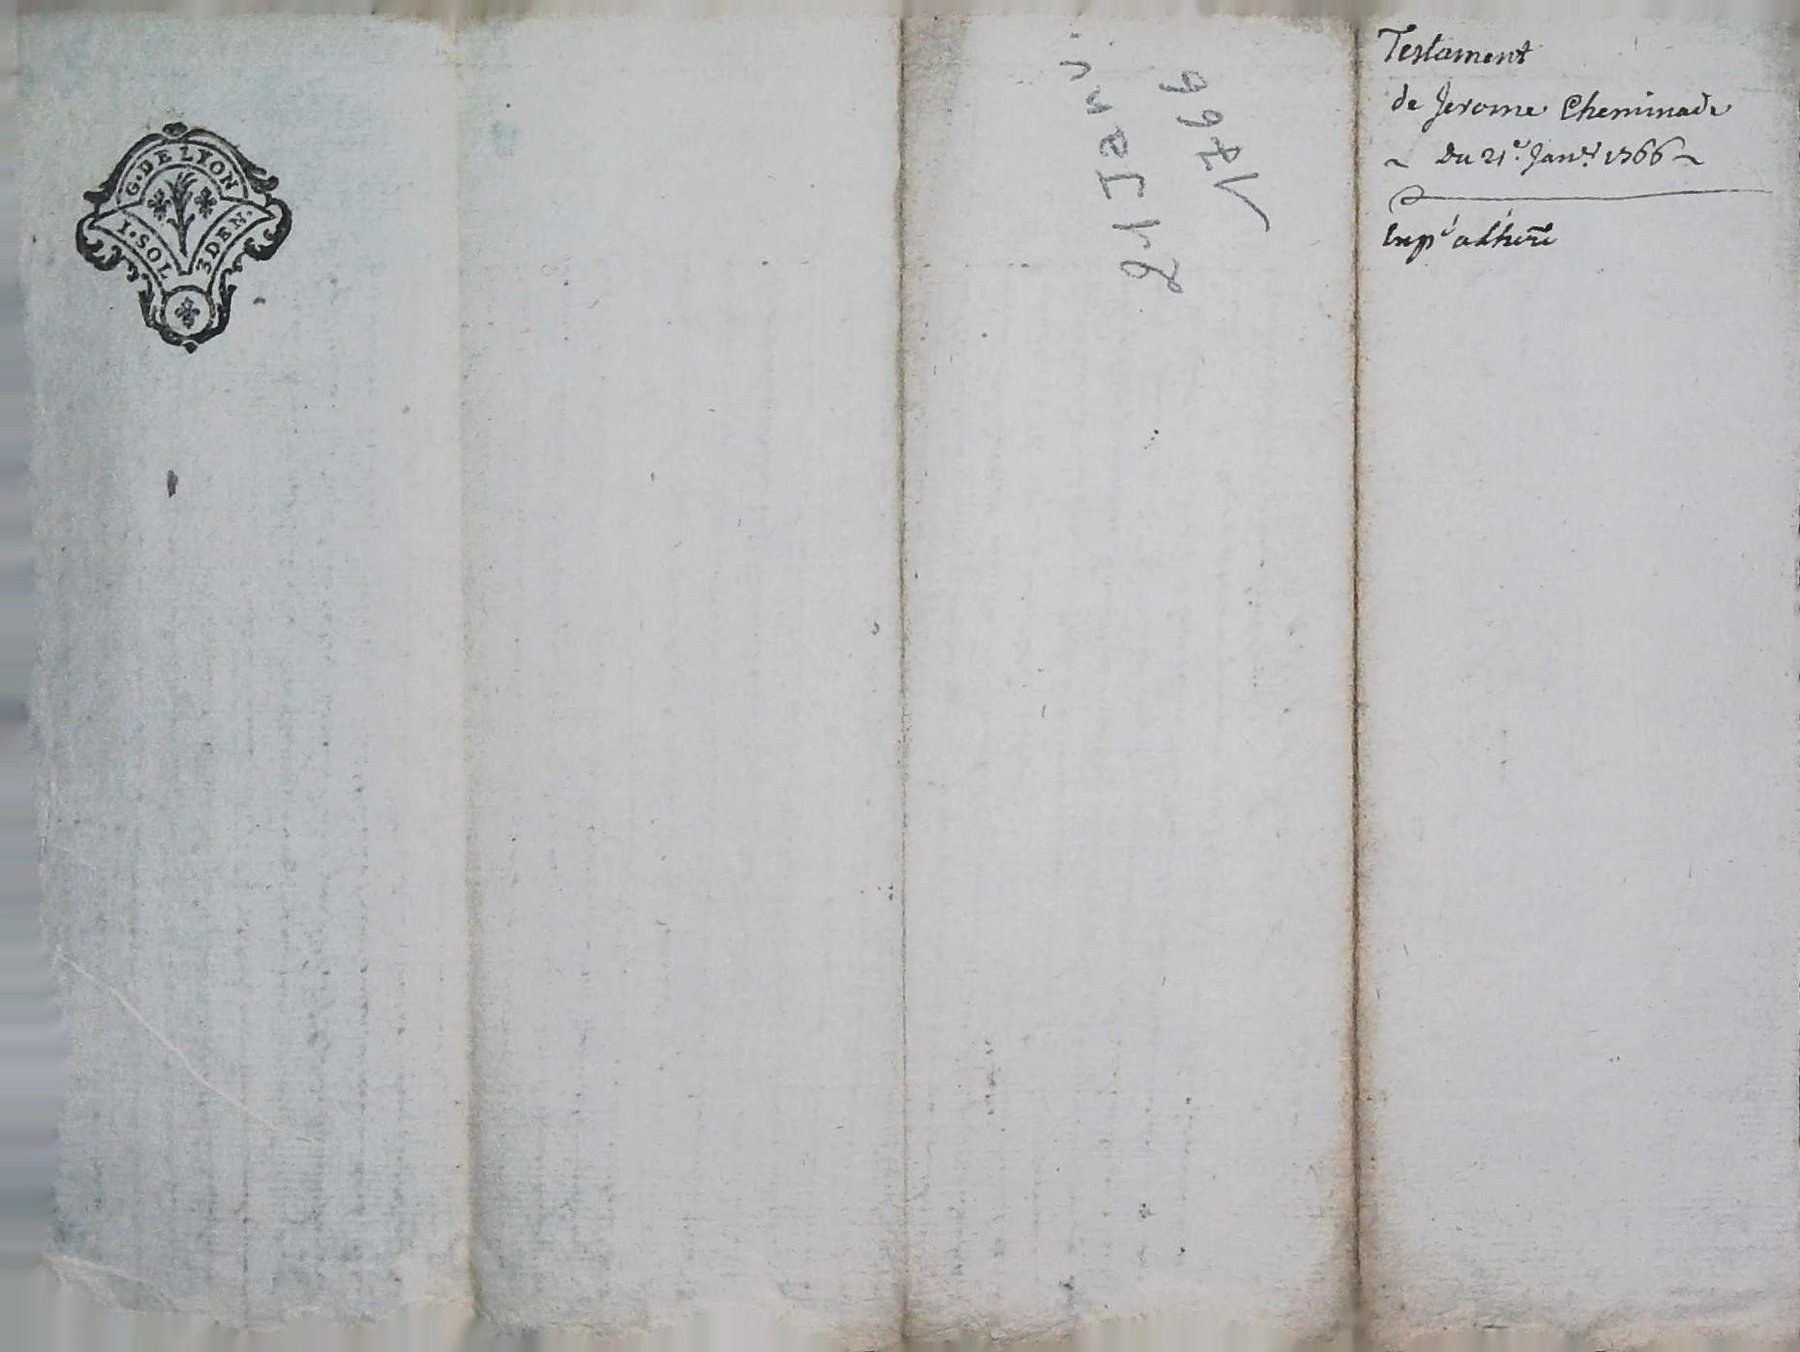 G. DE LYON
1. SOL 3 DEN.
21 Janv.
1766
Testament
de Jerome Cheminade
~ Du 21e. Janer. 1766 ~